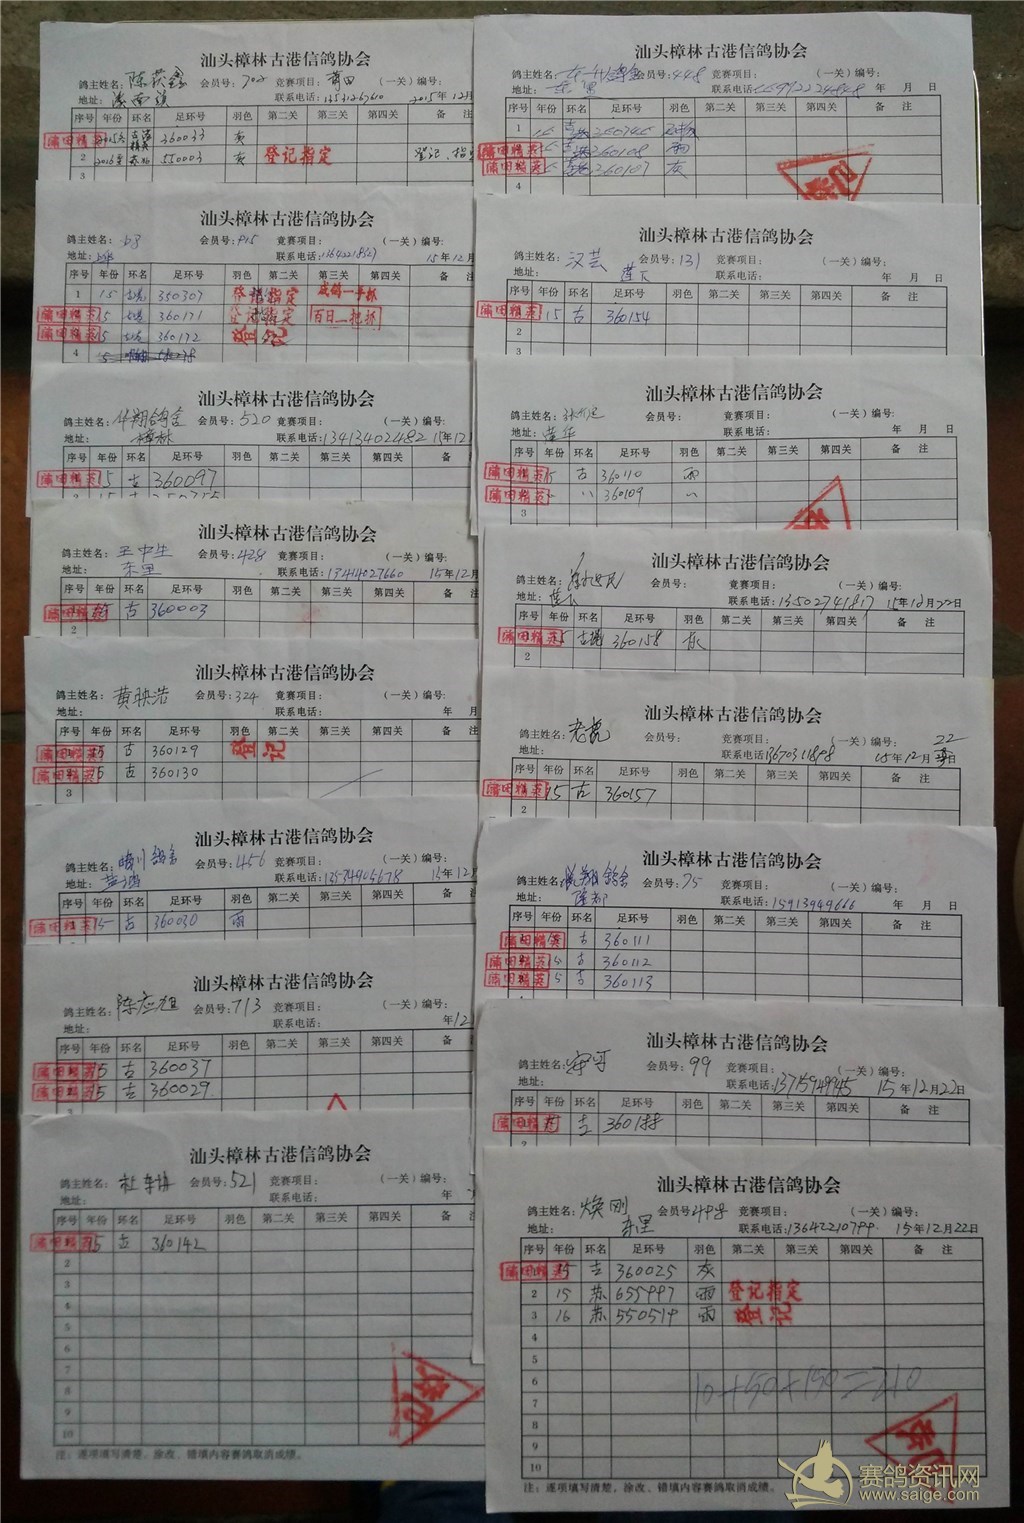 汕头樟林古港信鸽协会
鸽主姓名: 会员号:702 竞赛项目:莆田 (一关)编号:
地址: 联系电话: 2015年12月
序号 年份 环名 足环号 羽色 第二关 第三关 第四关 备
莆田精英 360033 灰
2 550003 灰 登记指定 登记、指定
3
汕头樟林古港信鸽协会
鸽主姓名: 会员号:915 竞赛项目: (一关)编号:
地址: 联系电话: 15年12月
序号 年份 环名 足环号 羽色 第二关 第三关 第四关 备
1 15 350307 登记指定
莆田精英 5 360171 登记指定 百日一把抓
莆田精英 5 360172 登记
4
汕头樟林古港信鸽协会
鸽主姓名: 会员号:520 竞赛项目: (一关)编号:
地址:樟林 联系电话:13413402482 15年12月
序号 年份 环名 足环号 羽色 第二关 第三关 第四关 备
莆田精英 15 古 360097
汕头樟林古港信鸽协会
鸽主姓名:王中生 会员号:428 竞赛项目: (一关)编号:
地址:东里 联系电话:13414027660 15年12月
序号 年份 环名 足环号 羽色 第二关 第三关 第四关 备
莆田精英 5 古 360003
2
汕头樟林古港信鸽协会
鸽主姓名:黄映浩 会员号:324 竞赛项目: (一关)编号:
地址: 联系电话: 年 月
序号 年份 环名 足环号 羽色 第二关 第三关 第四关 备
莆田精英 5 古 360129 登记
莆田精英 5 古 360130
3
汕头樟林古港信鸽协会
鸽主姓名: 会员号:456 竞赛项目: (一关)编号:
地址: 联系电话:13574905678 15年12月
序号 年份 环名 足环号 羽色 第二关 第三关 第四关 备
莆田精英 15 古 360030 雨
汕头樟林古港信鸽协会
鸽主姓名:陈应旭 会员号:713 竞赛项目: (一关)编号:
地址: 联系电话: 年12
序号 年份 环名 足环号 羽色 第二关 第三关 第四关 备
莆田精英 5 古 360037
莆田精英 5 古 360029
汕头樟林古港信鸽协会
鸽主姓名: 会员号:521 竞赛项目: (一关)编号:
地址: 联系电话: 年
序号 年份 环名 足环号 羽色 第二关 第三关 第四关 备
莆田精英 15 古 360142
2
3
4
5
6
7
8
9
10
注:逐项填写清楚,涂改、错填内容赛鸽取消成绩。
汕头樟林古港信鸽协会
鸽主姓名: 会员号:448 竞赛项目: (一关)编号:
地址:东里 联系电话: 年 月 日
序号 年份 环名 足环号 羽色 第二关 第三关 第四关 备 注
1
莆田精英 360108 雨
莆田精英 360107 灰
4
汕头樟林古港信鸽协会
鸽主姓名:汉芸 会员号:131 竞赛项目: (一关)编号:
地址:莲下 联系电话: 年 月 日
序号 年份 环名 足环号 羽色 第二关 第三关 第四关 备 注
莆田精英 15 古 360154
2
3
汕头樟林古港信鸽协会
鸽主姓名: 会员号: 竞赛项目: (一关)编号:
地址:莲华 联系电话: 年 月 日
序号 年份 环名 足环号 羽色 第二关 第三关 第四关 备 注
莆田精英 15 古 360110 雨
莆田精英 360109
3
汕头樟林古港信鸽协会
鸽主姓名: 会员号: 竞赛项目: (一关)编号:
地址:莲下 联系电话:13502741817 15年12月22日
序号 年份 环名 足环号 羽色 第二关 第三关 第四关 备 注
莆田精英 15 360158 灰
2
汕头樟林古港信鸽协会
鸽主姓名:老虎 会员号: 竞赛项目: (一关)编号:
地址: 联系电话:13670311898 15年12月22日
序号 年份 环名 足环号 羽色 第二关 第三关 第四关 备 注
莆田精英 15 古 360157
2
汕头樟林古港信鸽协会
鸽主姓名: 会员号:75 竞赛项目: (一关)编号:
地址:隆都 联系电话:15913949666 年 月 日
序号 年份 环名 足环号 羽色 第二关 第三关 第四关 备 注
莆田精英 5 古 360111
莆田精英 15 古 360112
莆田精英 5 古 360113
汕头樟林古港信鸽协会
鸽主姓名: 会员号:99 竞赛项目: (一关)编号:
地址: 联系电话:13715949945 15年12月22日
序号 年份 环名 足环号 羽色 第二关 第三关 第四关 备 注
莆田精英 古
2
汕头樟林古港信鸽协会
鸽主姓名:焕刚 会员号:498 竞赛项目: (一关)编号:
地址:东里 联系电话:13642210799 15年12月22日
序号 年份 环名 足环号 羽色 第二关 第三关 第四关 备 注
莆田精英 15 古 360025 灰
2 15 苏 655997 雨 登记指定
3 16 苏 550519 雨 登记
4
5
6 10+50+150=210
7
8
9
10
注:逐项填写清楚,涂改、错填内容赛鸽取消成绩。
赛鸽资讯网
www.saige.com